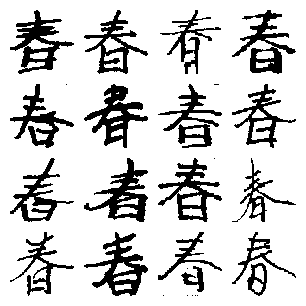 春春春春
春春春春
春春春春
春春春春